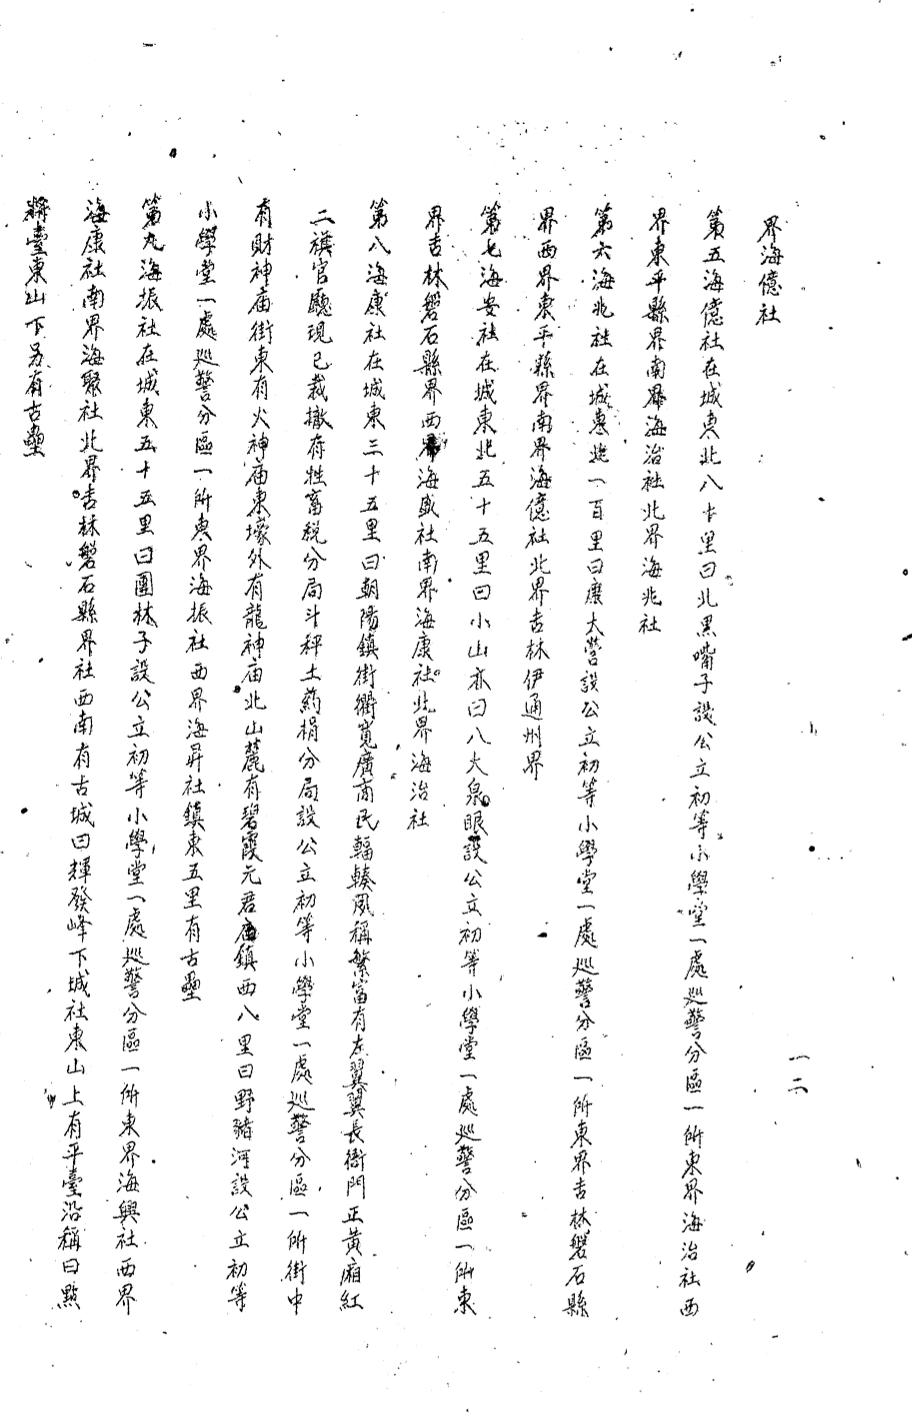 界海億社
第五海億社在城東北八十里曰北黑嘴子設公立初等小學堂一處巡警分區一所東界海治社西
界東平縣界南界海治社北界海兆社
第六海兆社在城東北一百里曰康大營設公立初等小學堂一處巡警分區一所東界吉林磐石縣
界西界東平縣界南界海億社北界吉林伊通州界
第七海安社在城東北五十五里曰小山亦曰八大泉眼設公立初等小學堂一處巡警分區一所東
界吉林磐石縣界西界海盛社南界海康社北界海治社
第八海康社在城東三十五里曰朝陽鎮街衢寬廣商民輻輳夙稱繁富有左翼翼長衙門正黃廂紅
二旗官廳現已裁撤存牲畜稅分局斗秤土葯捐分局設公立初等小學堂一處巡警分區一所街中
有財神庙街東有火神庙東壕外有龍神庙北山麓有碧霞元君庙鎮西八里曰野豬河設公立初等
小學堂一處巡警分區一所東界海振社西界海昇社鎮東五里有古壘
第九海振社在城東五十五里曰團林子設公立初等小學堂一處巡警分區一所東界海興社西界
海康社南界海聚社北界吉林磐石縣界社西南有古城曰輝發峰下城社東山上有平臺沿稱曰點
將臺東山下另有古壘
一二